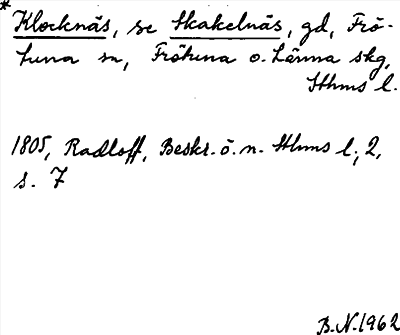 * Klocknäs, se Skakelnäs, gd, Frö-
tuna sn, Frötuna o. Länna skg,
Sthms l.
1805, Radloff, Beskr. ö. n. Sthms l., 2,
s. 7
B.N. 1962